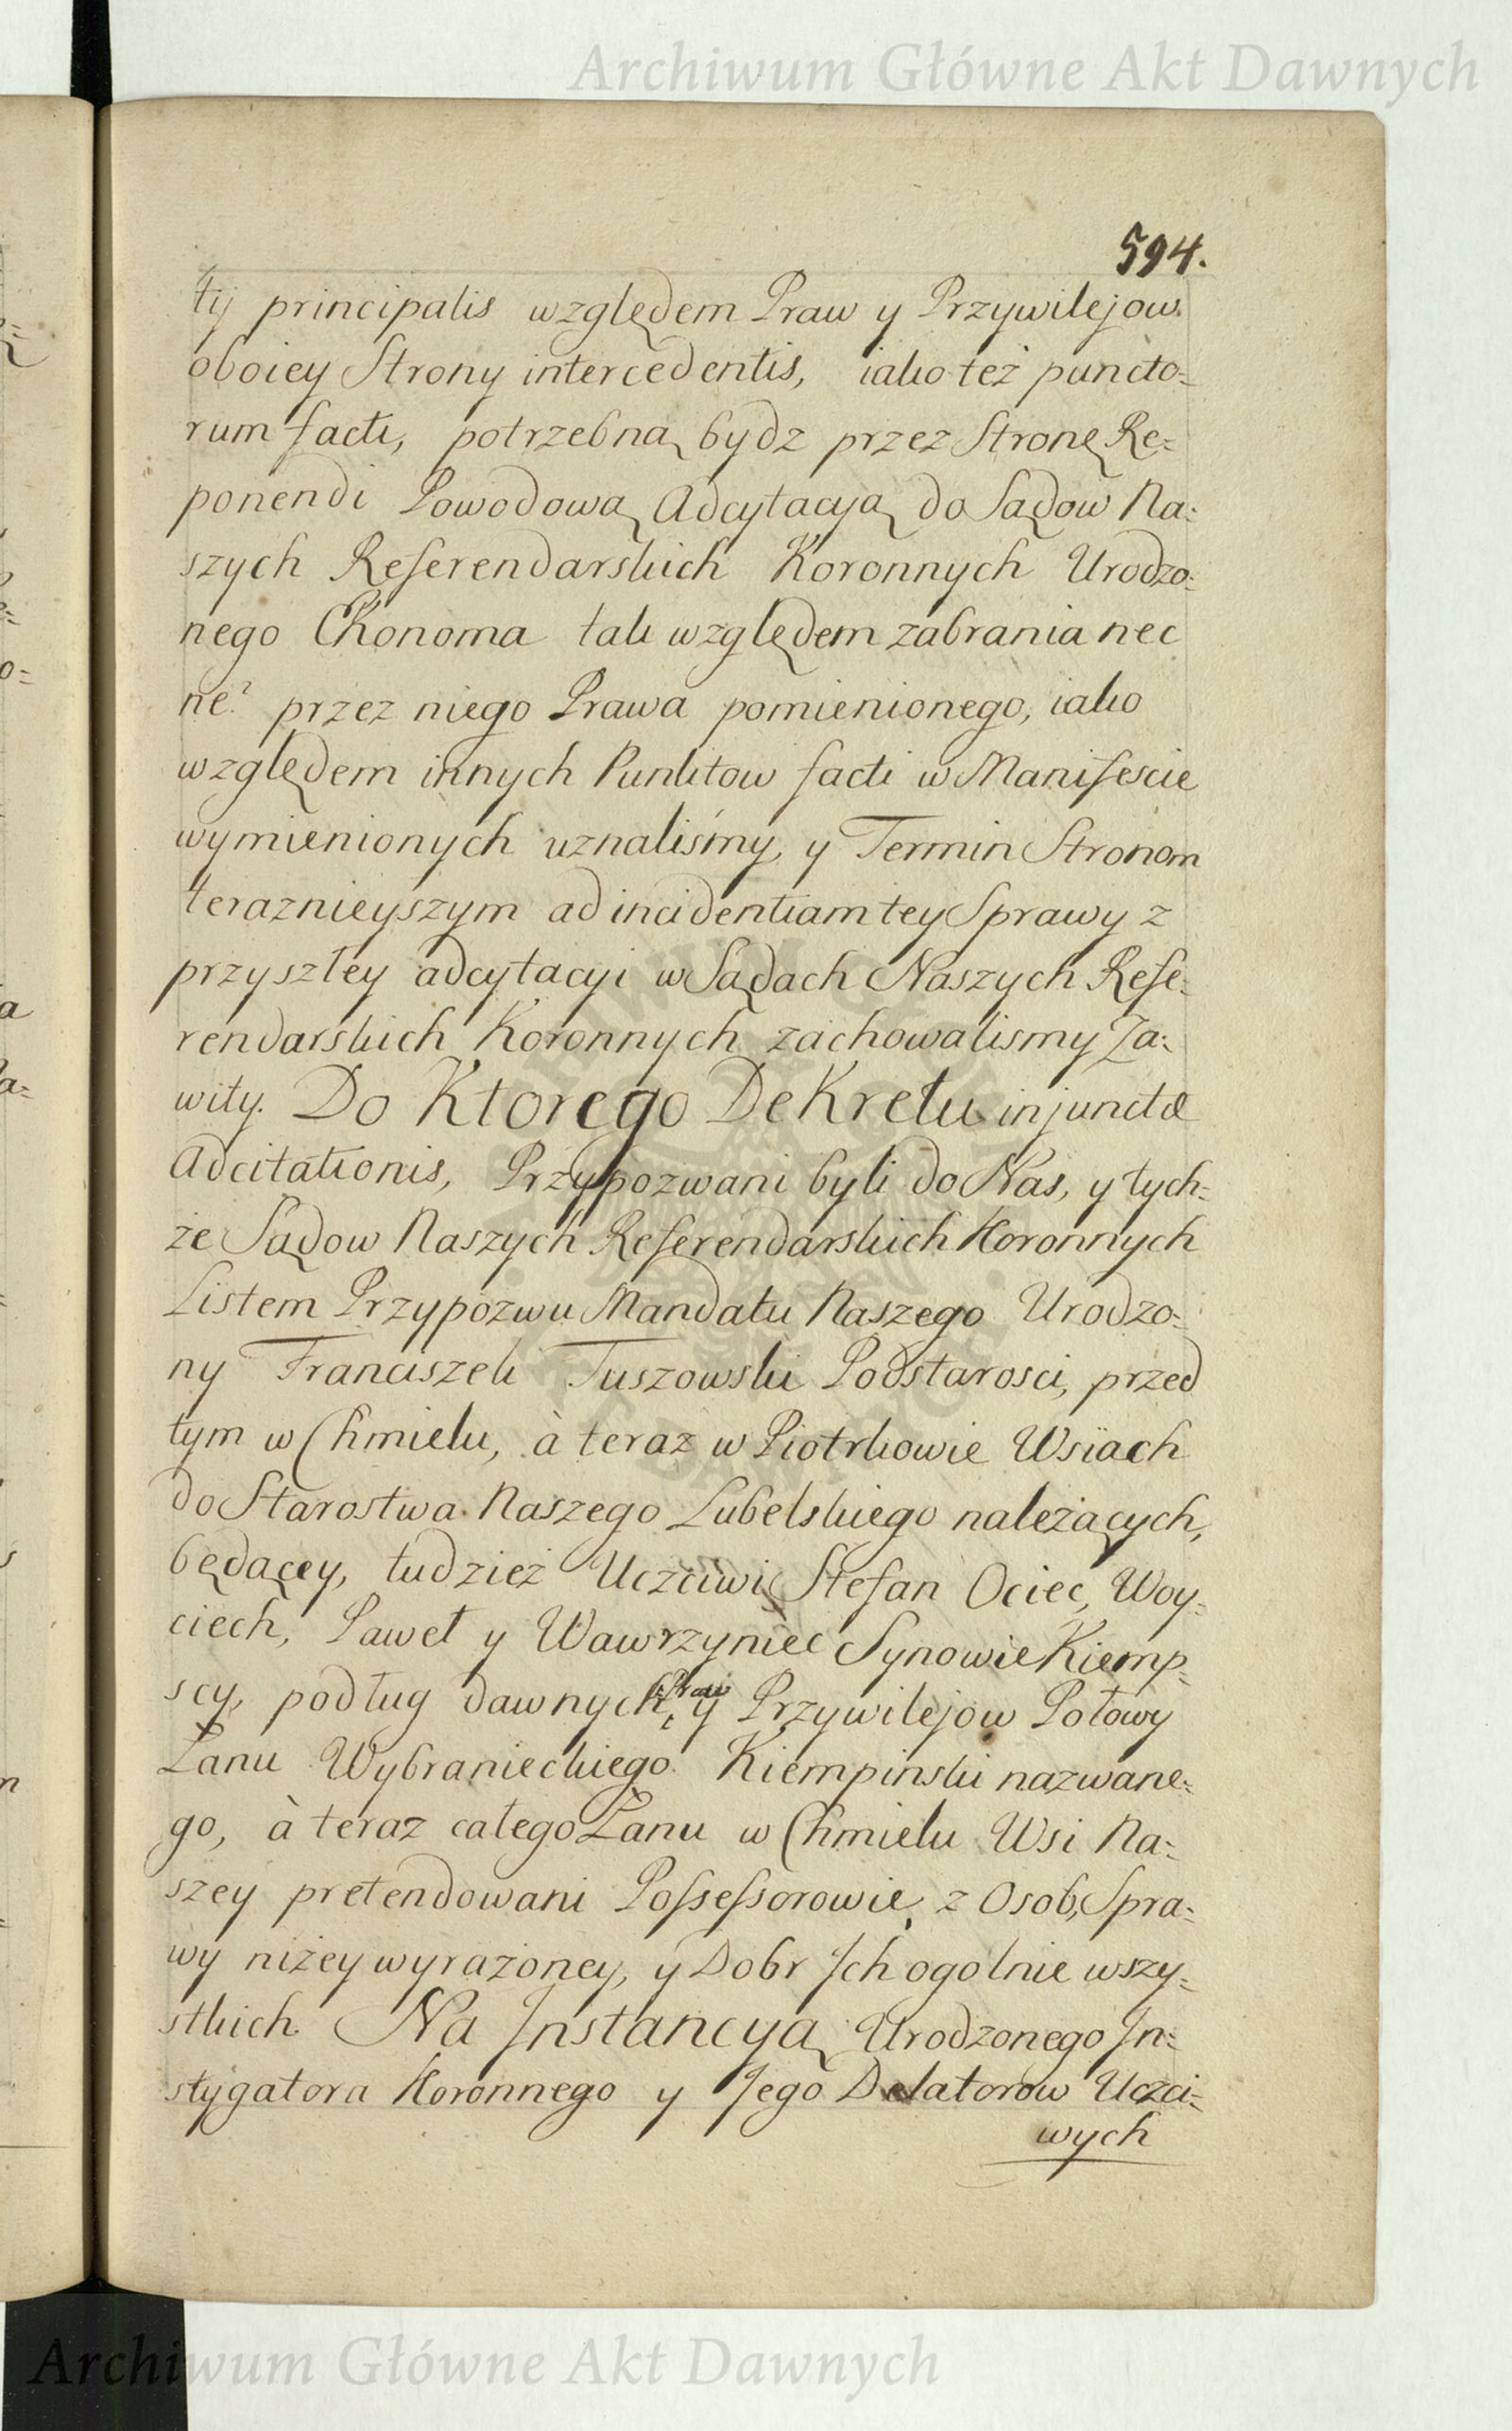 Archiwum Główne Akt Dawnych
594.
tij principalis względem Praw y Przywilejow
oboiey Strony intercedentis, iako też puncto=
rum facti, potrzebną bydz przez Stronę Re=
ponendi Powodową Adcytacyą do Sądow Na=
szych Referendarskich Koronnych Urodzo=
nego Ekonoma tak względem zabrania nec
ne? przez niego Prawa pomienionego, iako
względem innych Punktow facti w Manifescie
wymienionych uznaliśmy, y Termin Stronom
teraznieyszym ad incidentiam tey Sprawy z
przyszłey adcytacyi w Sądach Naszych Refe=
rendarskich Koronnych zachowalismy Za=
wity. Do Ktorego DeKretu injunctæ
Adcitationis, Przypozwani byli do Nas, y tych=
że Sądow Naszych Referendarskich Koronnych
Listem Przypozwu Mandatu Naszego Urodzo=
ny Franciszek Tuszowski Podstarosci, przed
tym w Chmielu, à teraz w Piotrkowie Wsiach
do Starostwa Naszego Lubelskiego należących,
będącey, tudzież Uczciwi Stefan Ociec, Woy=
ciech, Paweł y Wawrzyniec Synowie Kiemp=
scy, podług dawnych Praw y Przywilejow Połowy
Łanu Wybranieckiego Kiempinski nazwane=
go, à teraz całego Łanu w Chmielu Wsi Na=
szey pretendowani Possessorowie, z Osob, Spra=
wy niżey wyrażoney, y Dobr Ich ogolnie wszy=
stkich. Na Instancyą Urodzonego In=
stygatora Koronnego y Jego Delatorow Uczci=
wych
Archiwum Główne Akt Dawnych